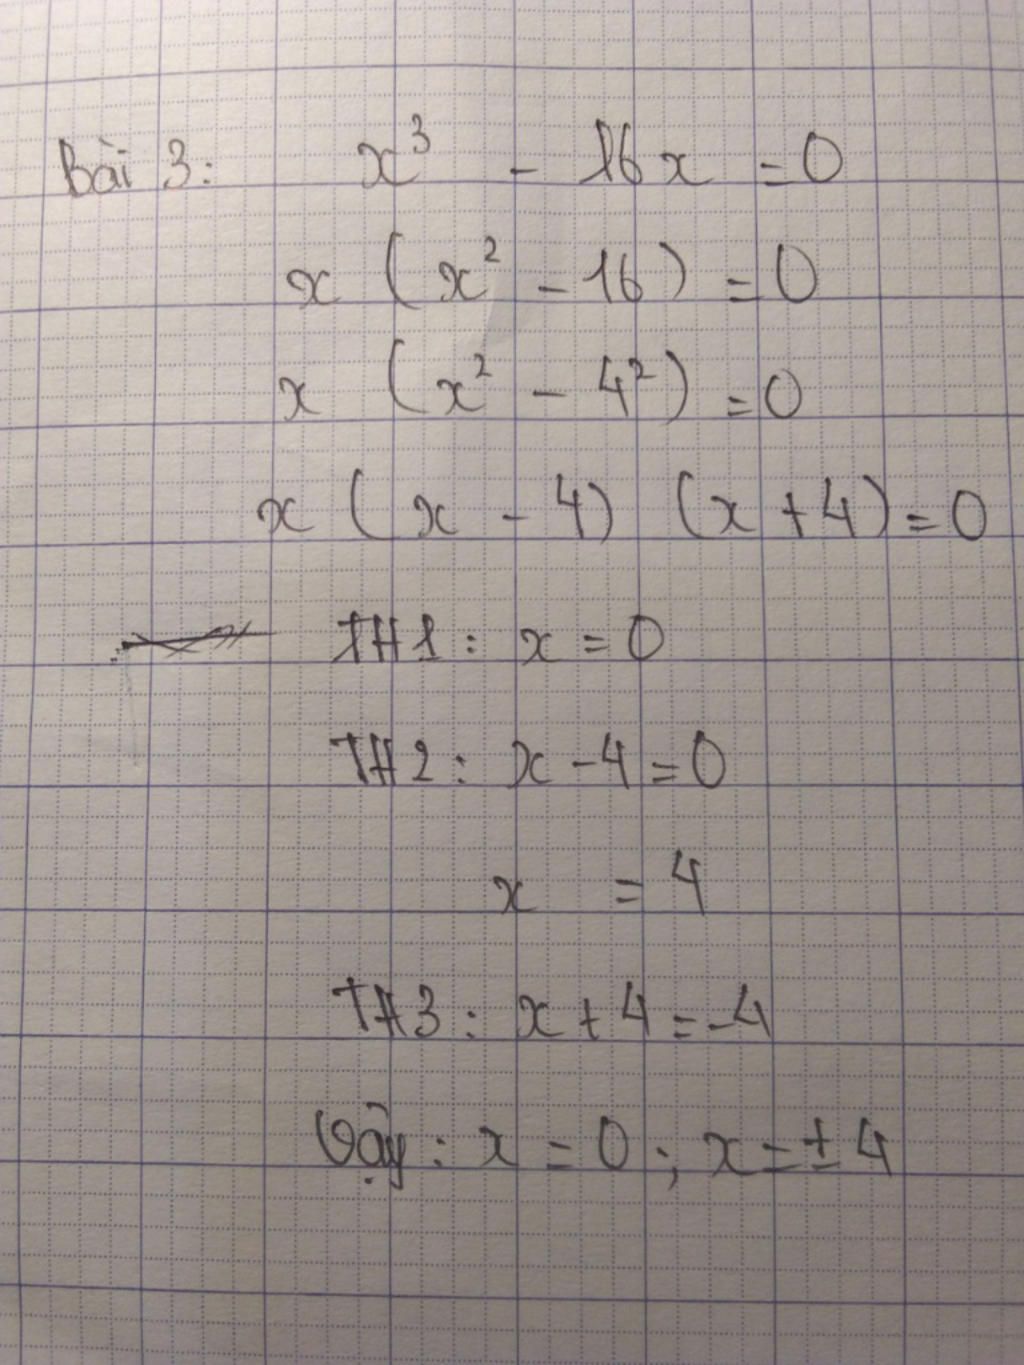 Bài 3: x³ - 16x = 0
x (x² - 16) = 0
x (x² - 4²) = 0
x (x - 4) (x + 4) = 0
TH1: x = 0
TH2: x - 4 = 0
x = 4
TH3: x + 4 = -4
Vậy: x = 0; x = ± 4